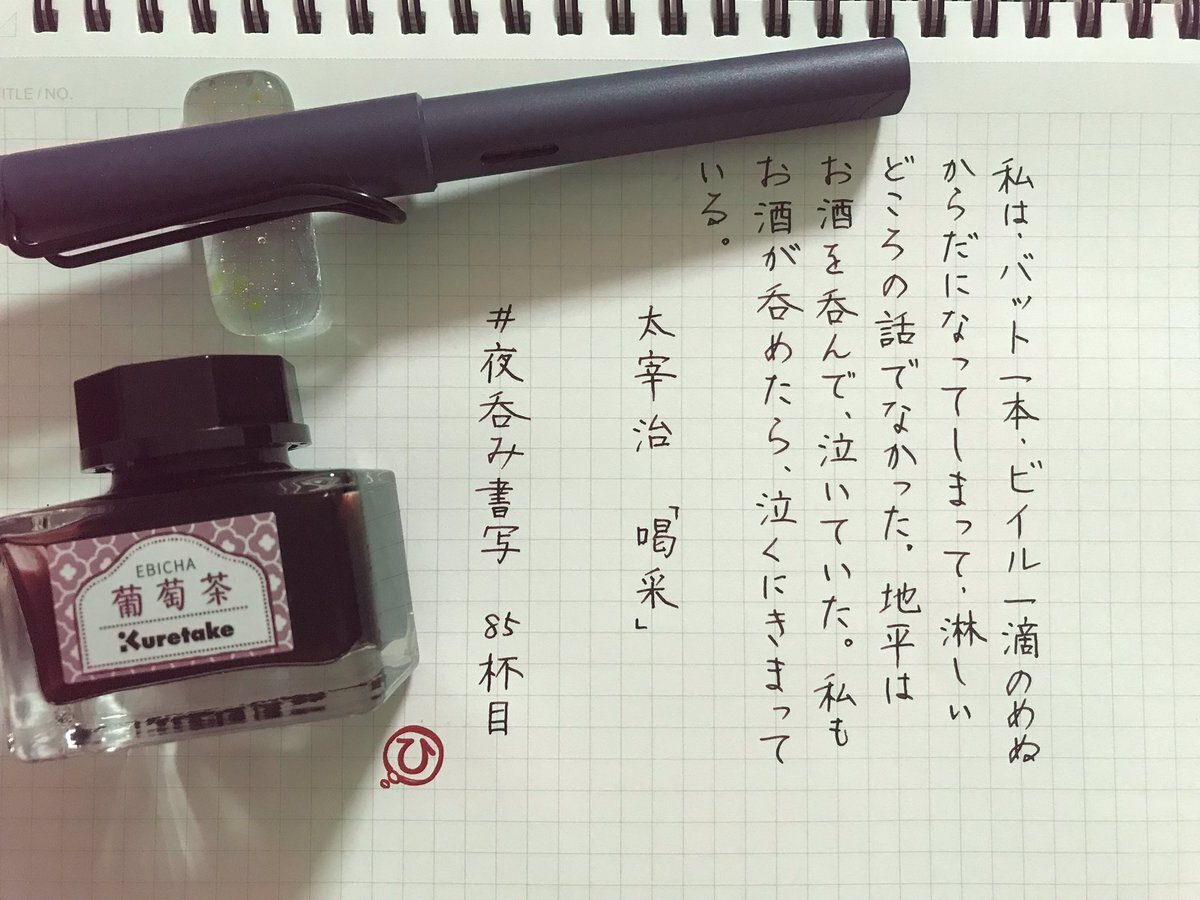 TITLE / NO.
私は、バット一本、ビイル一滴のめぬ
からだになってしまって、淋しい
どころの話でなかった。地平は
お酒を呑んで、泣いていた。私も
お酒が呑めたら、泣くにきまって
いる。
太宰治 「喝采」
#夜呑み書写 85杯目
ひ
EBICHA
葡萄茶
Kuretake